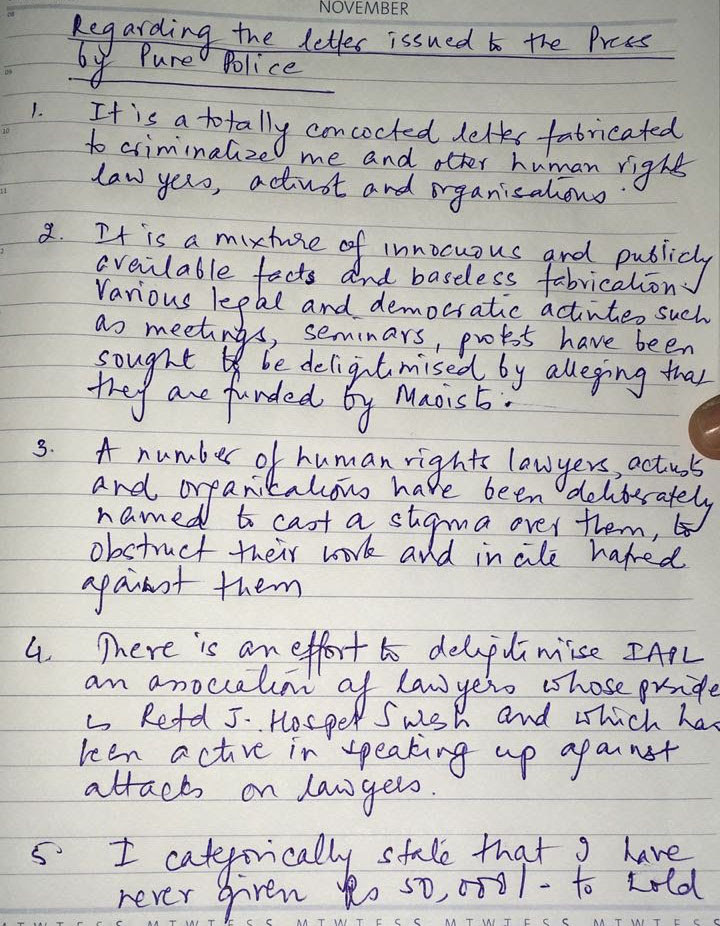 NOVEMBER
Regarding the letter issued to the Press
by Pune Police
1. It is a totally concocted letter fabricated
to criminalize me and other human right
lawyers, activist and organisations.
2. It is a mixture of innocuous and publicly
available facts and baseless fabrication.
Various legal and democratic activities such
as meetings, seminars, protest have been
sought to be deligitimised by alleging that
they are funded by Maoist.
3. A number of human rights lawyers, activists
and organisations have been deliberately
named to cast a stigma over them, to
obstruct their work and incite hatred
against them
4. There is an effort to deligitimise IAPL
an association of lawyers whose preside
is Retd J. Hospet Suresh and which has
been active in speaking up against
attacks on lawyers.
5 I categorically state that I have
never given Rs 50,000/- to